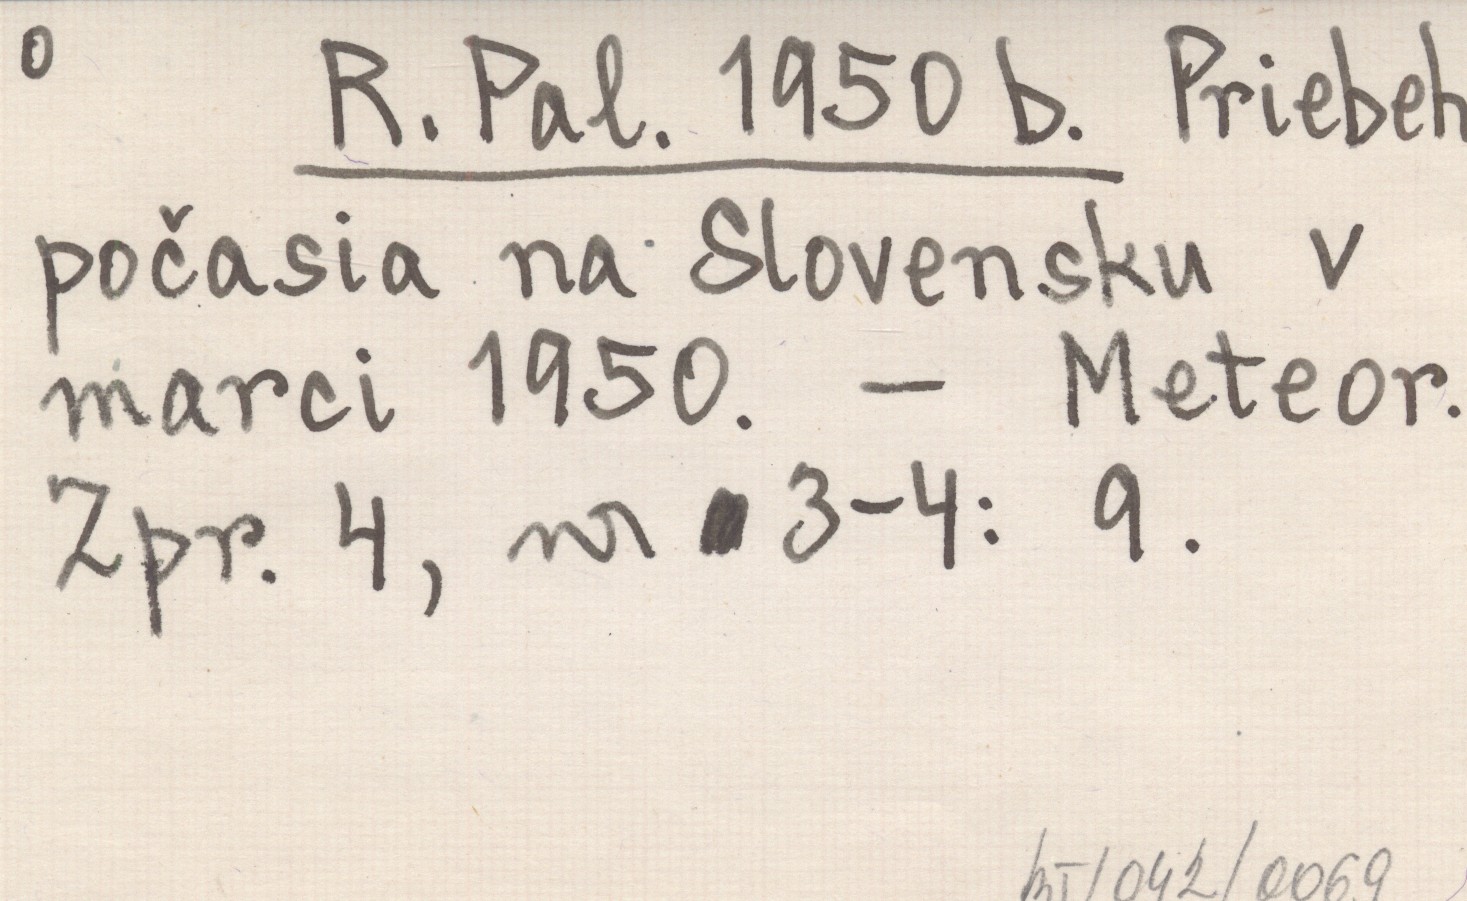 o R. Pal. 1950 b. Priebeh
počasia na Slovensku v
marci 1950. – Meteor.
Zpr. 4, nr 3-4: 9.
/042/0069